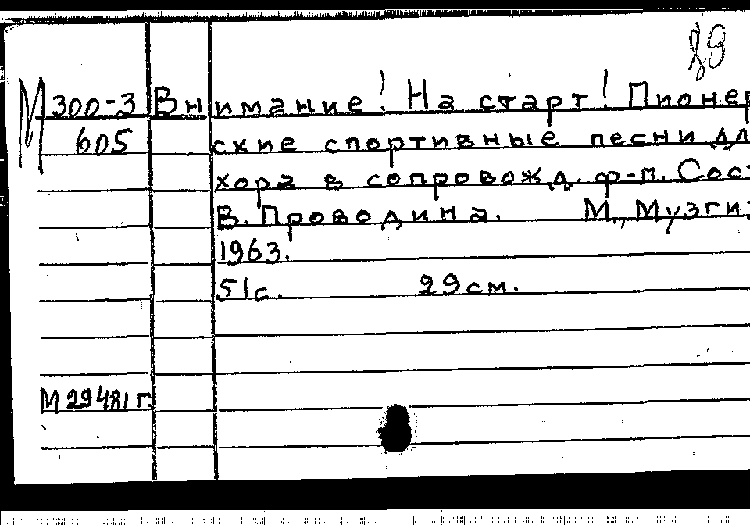 89
М 300-3 Внимание! На старт! Пионер
605 ские спортивные песни дл
хора в сопровожд. ф-п. Сост
В. Проводина. М., Музгиз
1963.
51с. 29см.
М 29481 г.